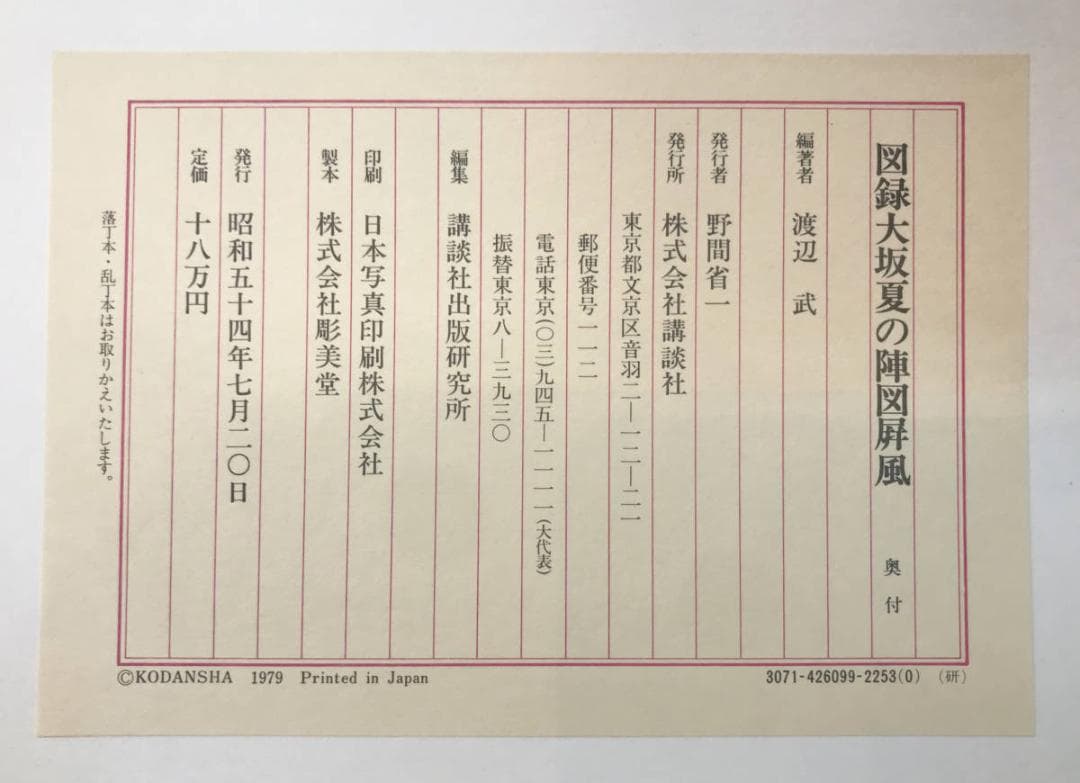 図録大坂夏の陣図屛風　奥付
編著者　渡辺　武
発行者　野間省一
発行所　株式会社講談社
東京都文京区音羽二―一二―二一
郵便番号一一二
電話東京(〇三)九四五―一一一一(大代表)
振替東京八―三九三〇
編集　講談社出版研究所
印刷　日本写真印刷株式会社
製本　株式会社彫美堂
発行　昭和五十四年七月二〇日
定価　十八万円
落丁本・乱丁本はお取りかえいたします。
©KODANSHA 1979 Printed in Japan
3071-426099-2253(0) (研)